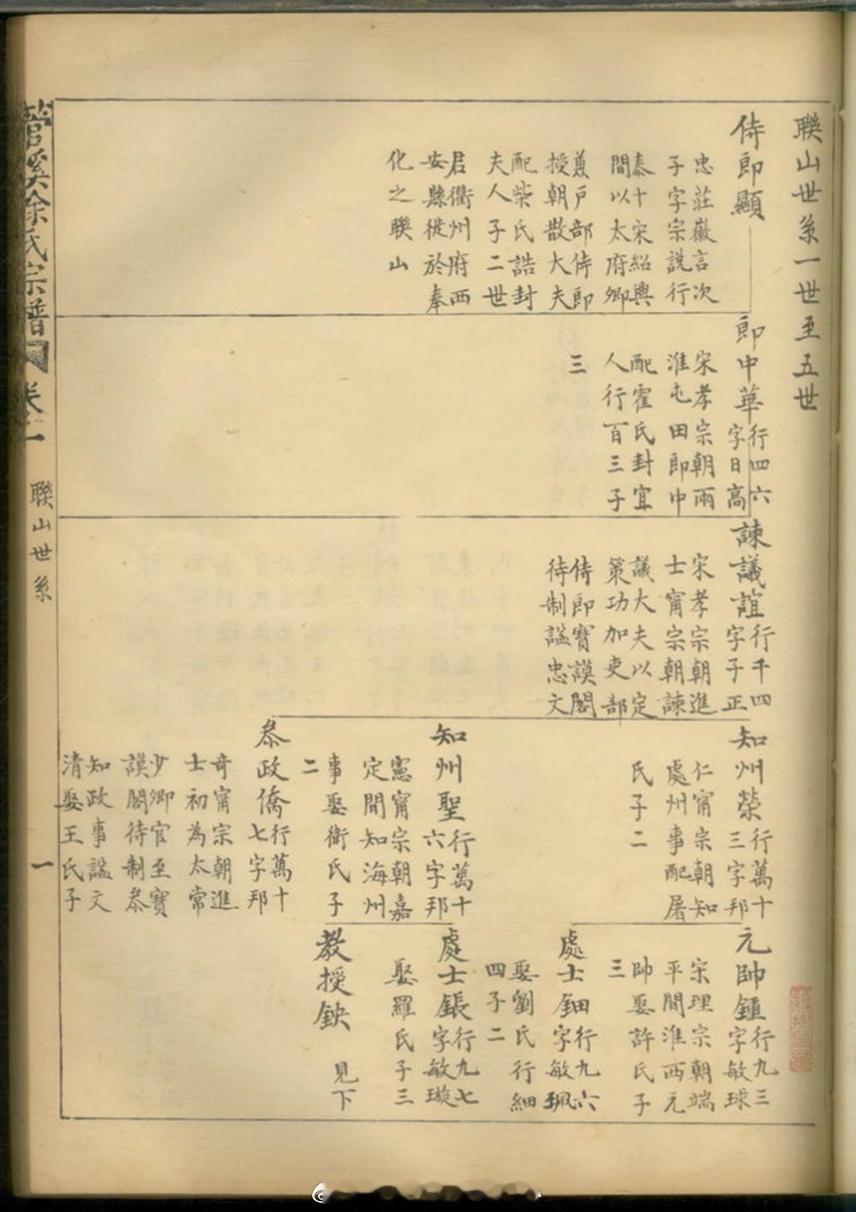 聯山世系一世至五世
侍郎顯
忠莊嶽言次
子字宗說行
泰十宋紹興
間以太府卿
兼戶部侍郎
授朝散大夫
配柴氏誥封
夫人子二世
君衢州府西
安縣徙於奉
化之聯山
郎中華
行四六
字日高
宋孝宗朝兩
淮屯田郎中
配霍氏封宜
人行百三子
三
諫議誼
行千四
字子正
宋孝宗朝進
士甯宗朝諫
議大夫以定
策功加吏部
侍郎寶謨閣
待制謚忠文
知州榮
行萬十
三字邦
仁甯宗朝知
處州事配屠
氏子二
知州聖
行萬十
六字邦
憲甯宗朝嘉
定間知海州
事娶衛氏子
二
叅政僑
行萬十
七字邦
奇甯宗朝進
士初為太常
少卿官至寶
謨閣待制叅
知政事謚文
清娶王氏子
元帥鍾
行九三
字敏球
宋理宗朝端
平間淮西元
帥娶許氏子
三
處士鈿
行九六
字敏珮
娶劉氏行細
四子二
處士鋹
行九七
字敏璇
娶羅氏子三
教授鉠
見下
菅溪徐氏宗譜
卷一
聯山世系
一